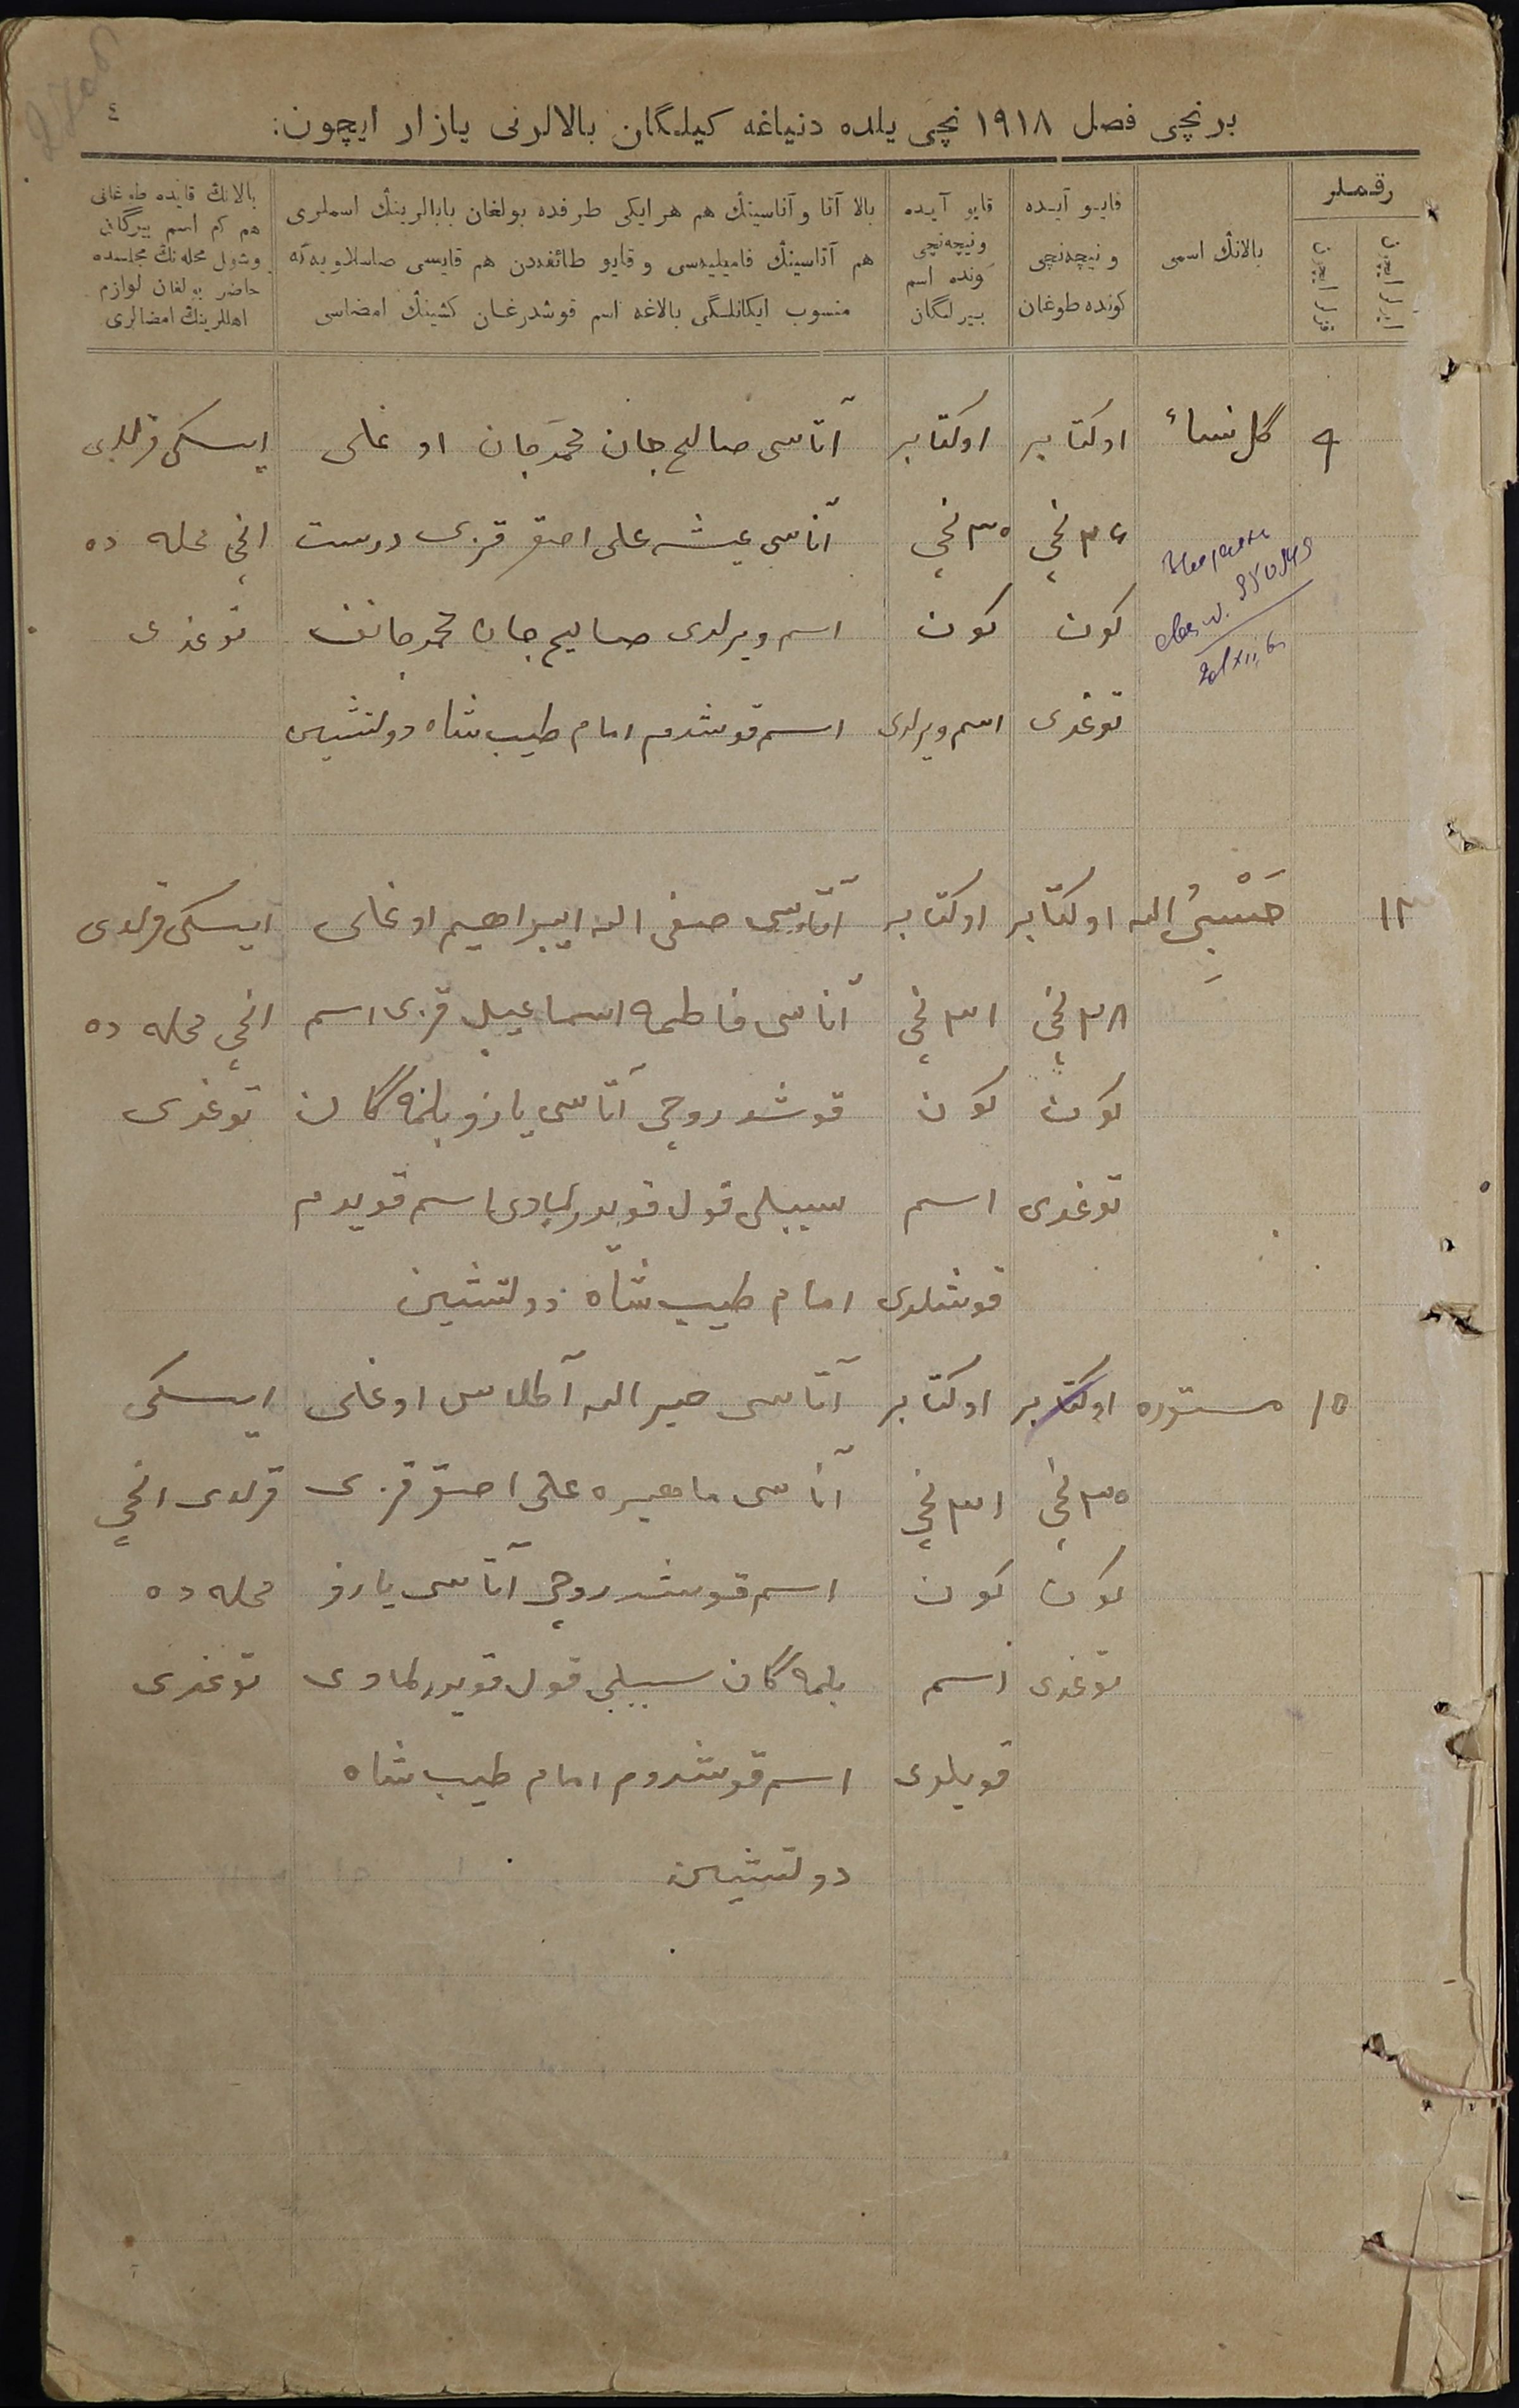 ٤
برنچی فصل ١٩١٨ نچی یلده دنیاغه کیلگان بالالرنی یازار ایچون:
رقملر
ایرلر ایچون
قزلر ایچون
بالانڭ اسمی
قایو آیده
و نیچه‌نچی
کونده طوغان
قایو آیده
و نیچه‌نچی
کونده اسم
بیرلگان
بالا آتا و آناسینڭ هم هر ایکی طرفده بولغان بابالرینڭ اسملری
هم آتاسینڭ فامیلیه‌سی و قایو طائفه‌دن هم قایسی صاسلاویه‌گه
منسوب ایکانلگی بالاغه اسم قوشدرغان کشینڭ امضاسی
بالانڭ قایده طوغانی
هم کم اسم بیرگان
وشول محله‌نڭ مجلسده
حاضر بولغان لوازم
اهللرینڭ امضالری
٩ گل نساء اوکتابر اوکتابر آتاسی صالیح جان محمدجان اوغلی ایسکی قرلدی
٢٦ نچی ٣٠ نچی آناسی عیشه علی اصغر قزی درست انچی محله ده
کون کون اسم ویرلدی صالیح جان محمدجانف توغدی
توغدی اسم ویرلدی اسم قوشدم امام طیب شاه دولتشین
١٣ حَسْبِیُ الله اوکتابر اوکتابر آتاسی صفی الله ابراهیم اوغلی ایسکی قرلدی
٢٨ نچی ٣١ نچی آناسی فاطمه اسماعیل قزی اسم انچی محله ده
کون کون قوشدروچی آتاسی یازو بلمه‌گان توغدی
توغدی اسم سببلی قول قویدرلمادی اسم قویدم
قوشلدی امام طیب شاه دولتشین
١٥ مستوره اوکتابر اوکتابر آتاسی خیر الله آطلاس اوغلی ایسکی
٣٠ نچی ٣١ نچی آناسی ماهیره علی اصغر قزی قرلدی انچی
کون کون اسم قوشدروچی آتاسی یازو محله ده
توغدی اسم بلمه‌گان سببلی قول قویدرلمادی توغدی
قویلدی اسم قوشدوم امام طیب شاه
دولتشین